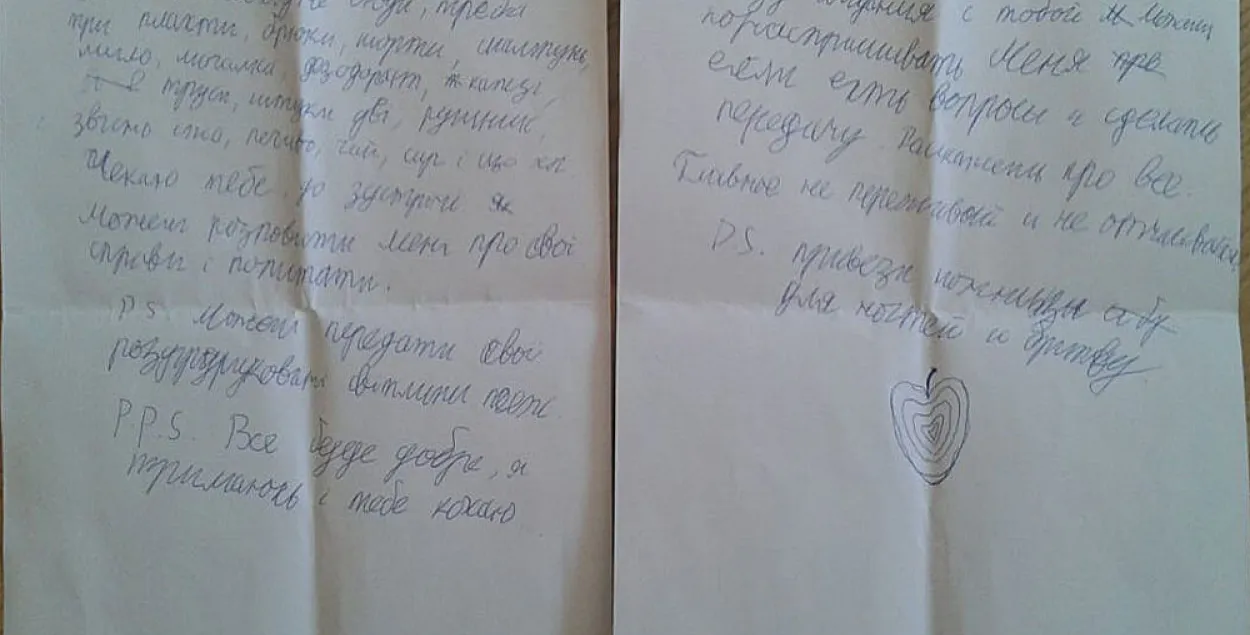 три плахти, брюки, шорти, шкарпетки,
мило, мочалка, дезодорант, капці,
труси, штуки дві, рушник,
звісно їжа, печиво, чай, сир і що хоч
Чекаю тебе до зустрічі
Можеш розповісти мені про свої
справи і попитати.
P.S. Можеш передати свої
роздруковані світлини
P.P.S. Все буде добре, я
тримаюсь і тебе кохаю
с тобой Можеш
порасспрашивать меня
если есть вопросы и сделать
передачу про все.
Главное не переживай и не отчаивайся
P.S. привези ножницы
для ногтей и бритву